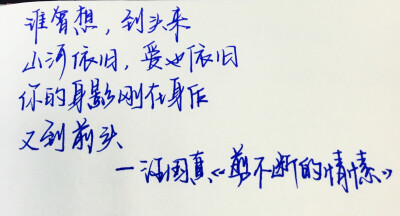 谁曾想，到头来
山河依旧，爱也依旧
你的身影刚在身后
又到前头
—汪国真《剪不断的情愫》